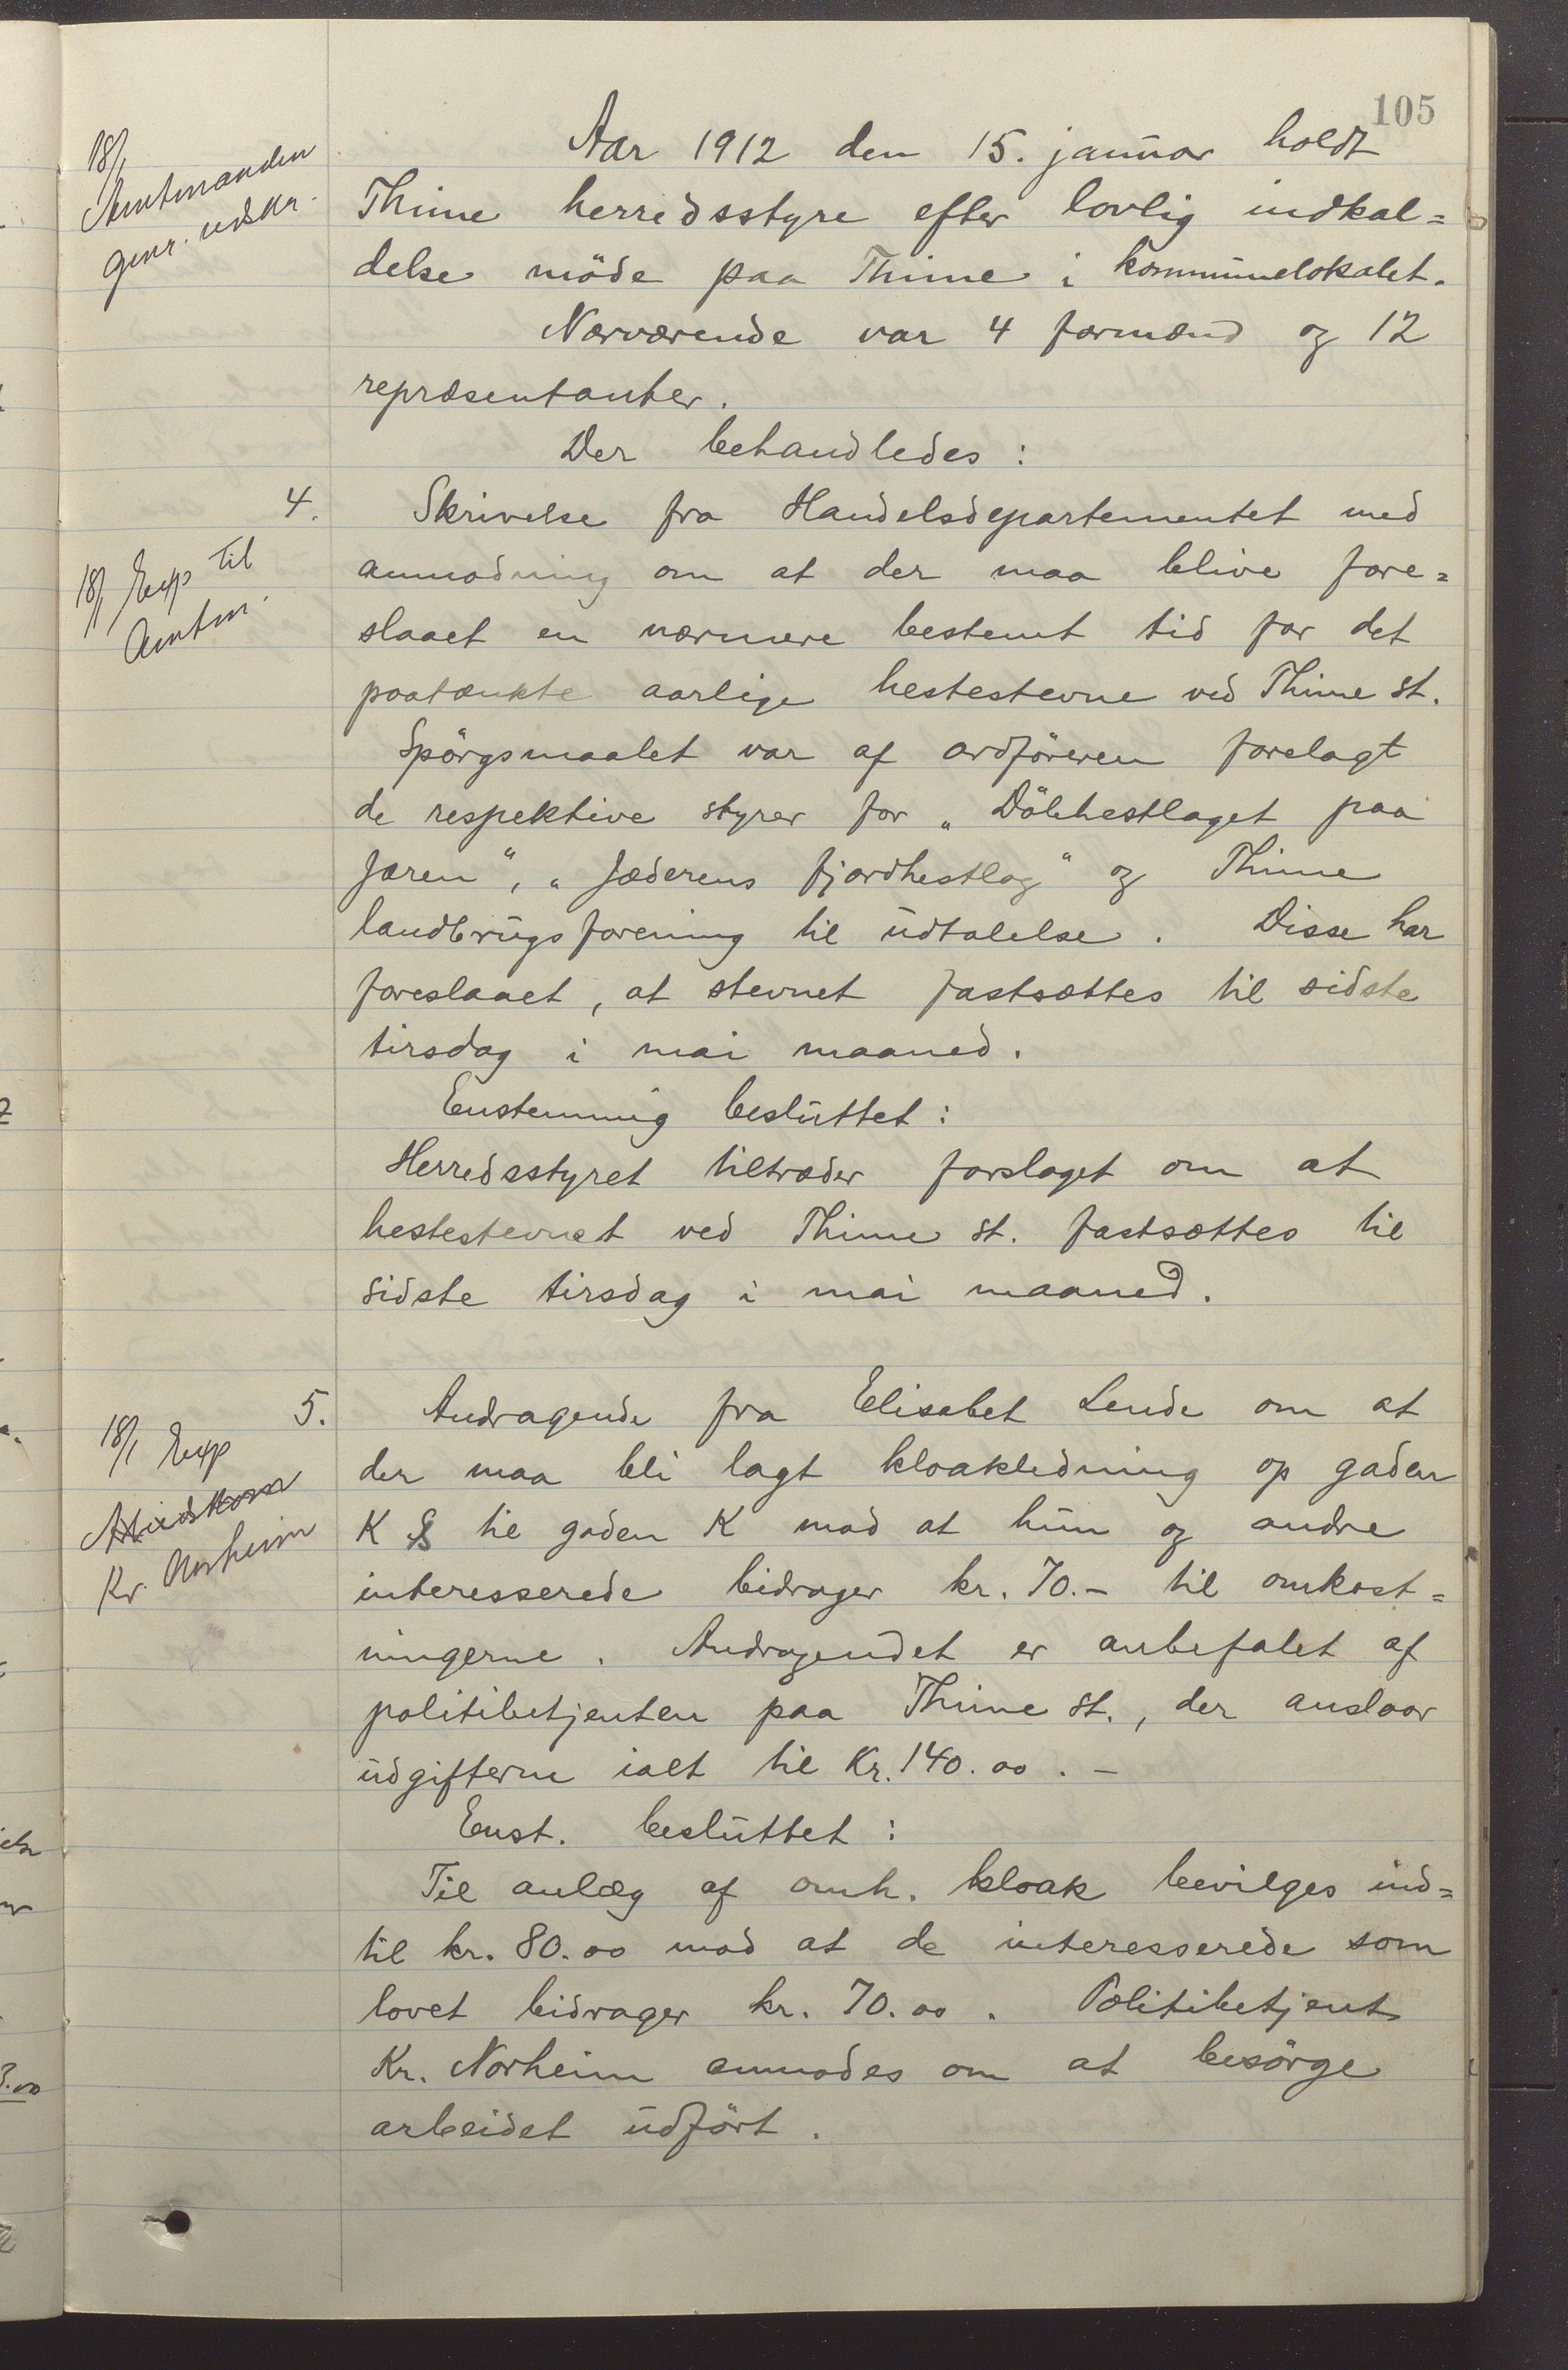 105
18/1
Amtmanden
genr. udskr.
Aar 1912 den 15. januar holdt
Thime herredsstyre efter lovlig indkal=
delse möde paa Thime i kommunelokalet.
Nærværende var 4 formænd og 12
repræsentanter.
Der behandledes:
4.
18/1 Exp til
Amtm.
Skrivelse fra Handelsdepartementet med
anmodning om at der maa blive fore=
slaaet en nærmere bestemt tid for det
paatænkte aarlige hestestevne ved Thime st.
Spörgsmaalet var af ordföreren forelagt
de respektive styrer for „Dölehestlaget paa
Jæren", „Jæderens fjordhestlag" og Thime
landbrugsforening til udtalelse. Disse har
foreslaaet, at stevnet fastsættes til sidste
tirsdag i mai maaned.
Enstemmig besluttet:
Herredsstyret tiltræder forslaget om at
hestestevnet ved Thime st. fastsættes til
sidste tirsdag i mai maaned.
5.
18/1 Exp
Kr. Norheim
Andragende fra Elisabet Lende om at
der maa bli lagt kloakledning op gaden
K til gaden K mod at hun og andre
interesserede bidrager kr. 70.- til omkost=
ningerne. Andragendet er anbefalet af
politibetjenten paa Thime st., der anslaar
udgifterne ialt til Kr. 140.00.-
Enst. besluttet:
Til anlæg af omh. kloak bevilges ind=
til kr. 80.00 mod at de interesserede som
lovet bidrager kr. 70.00. Politibetjent
Kr. Norheim anmodes om at besörge
arbeidet udfört.